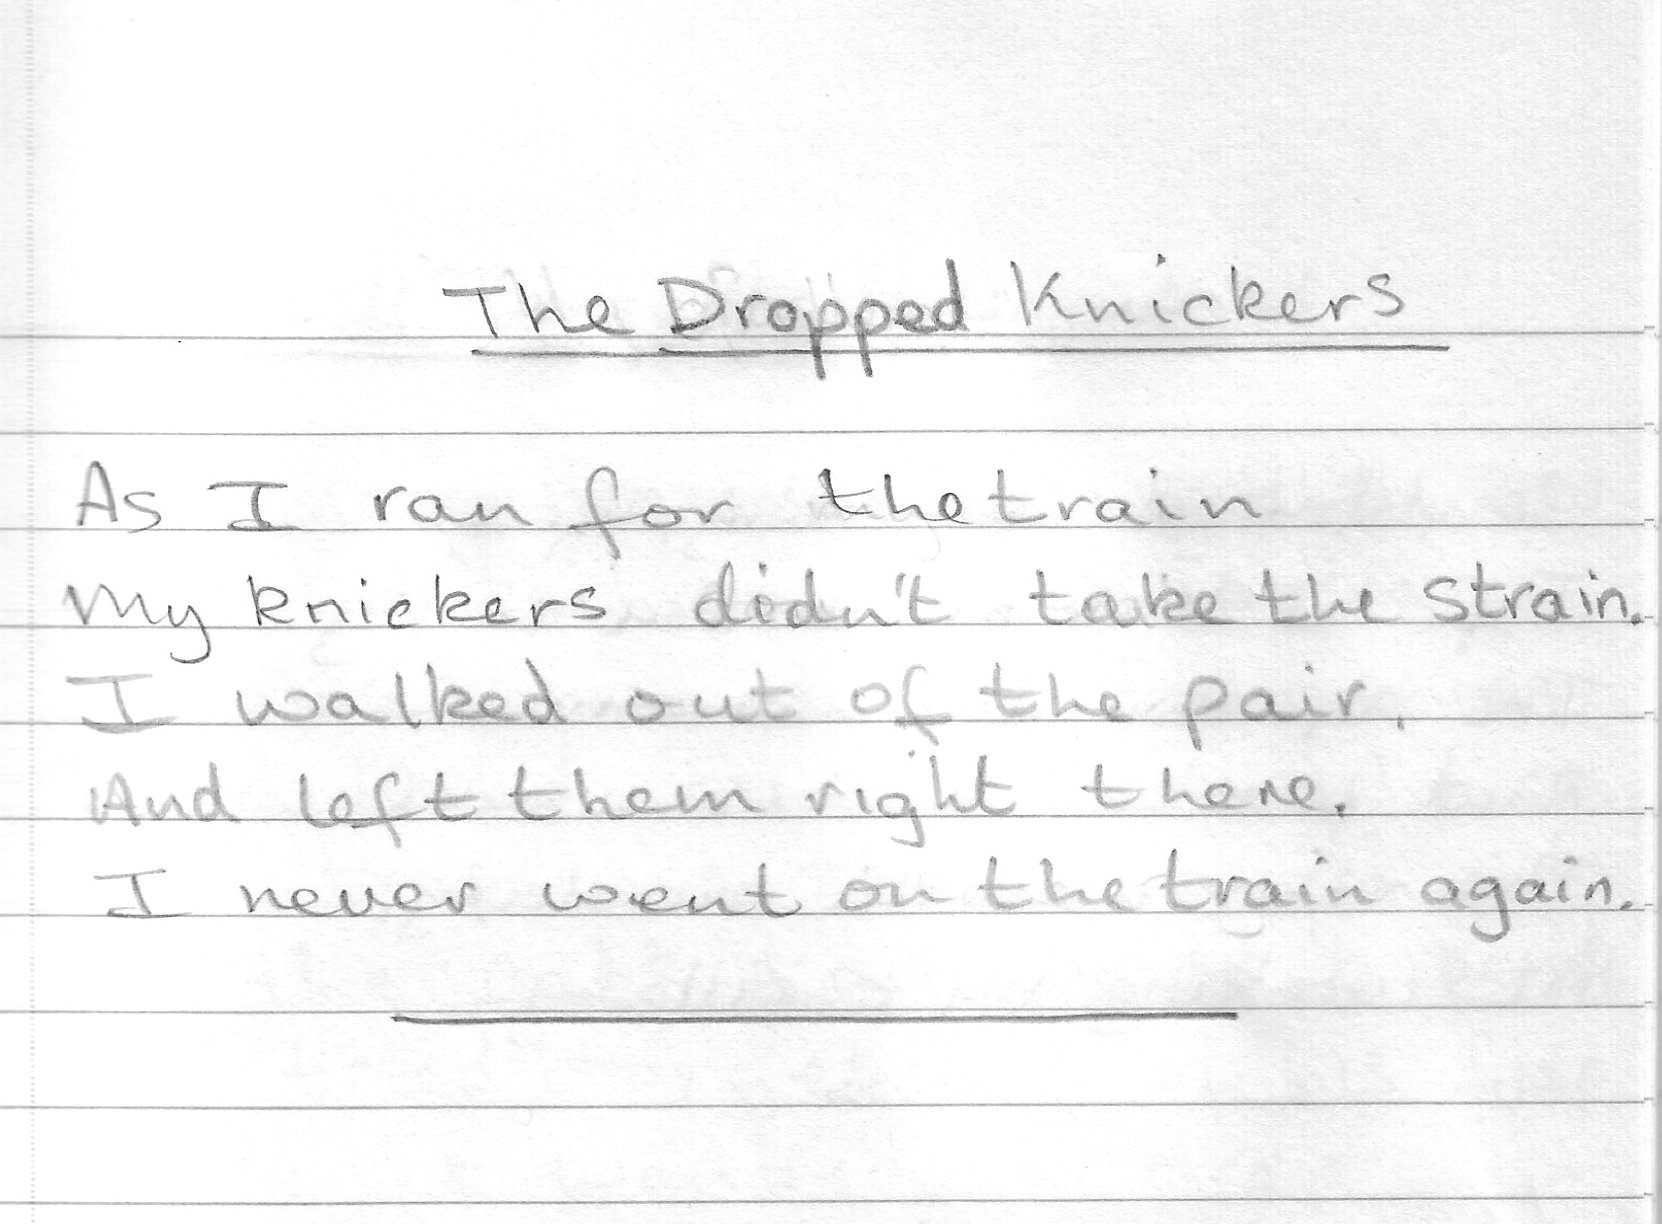 The Dropped Knickers
As I ran for the train
My knickers didn't take the strain.
I walked out of the pair,
And left them right there.
I never went on the train again.